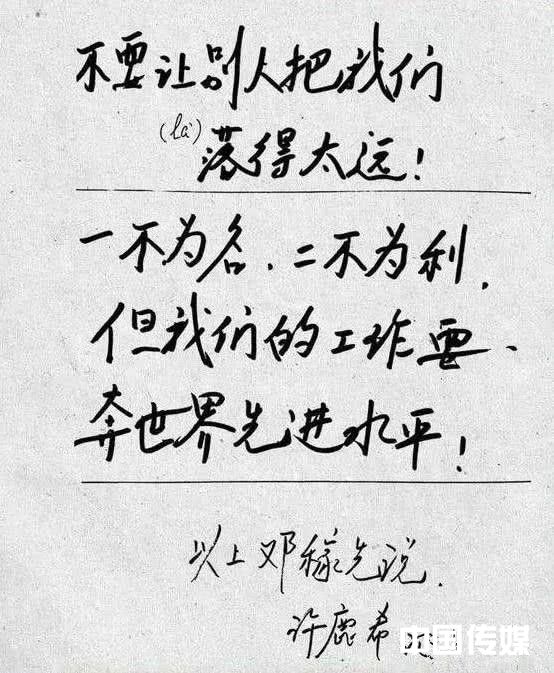 不要让别人把我们
(là)
落得太远！
一不为名．二不为利．
但我们的工作要、
奔世界先进水平！
以上邓稼先说．
许鹿希
中国传媒